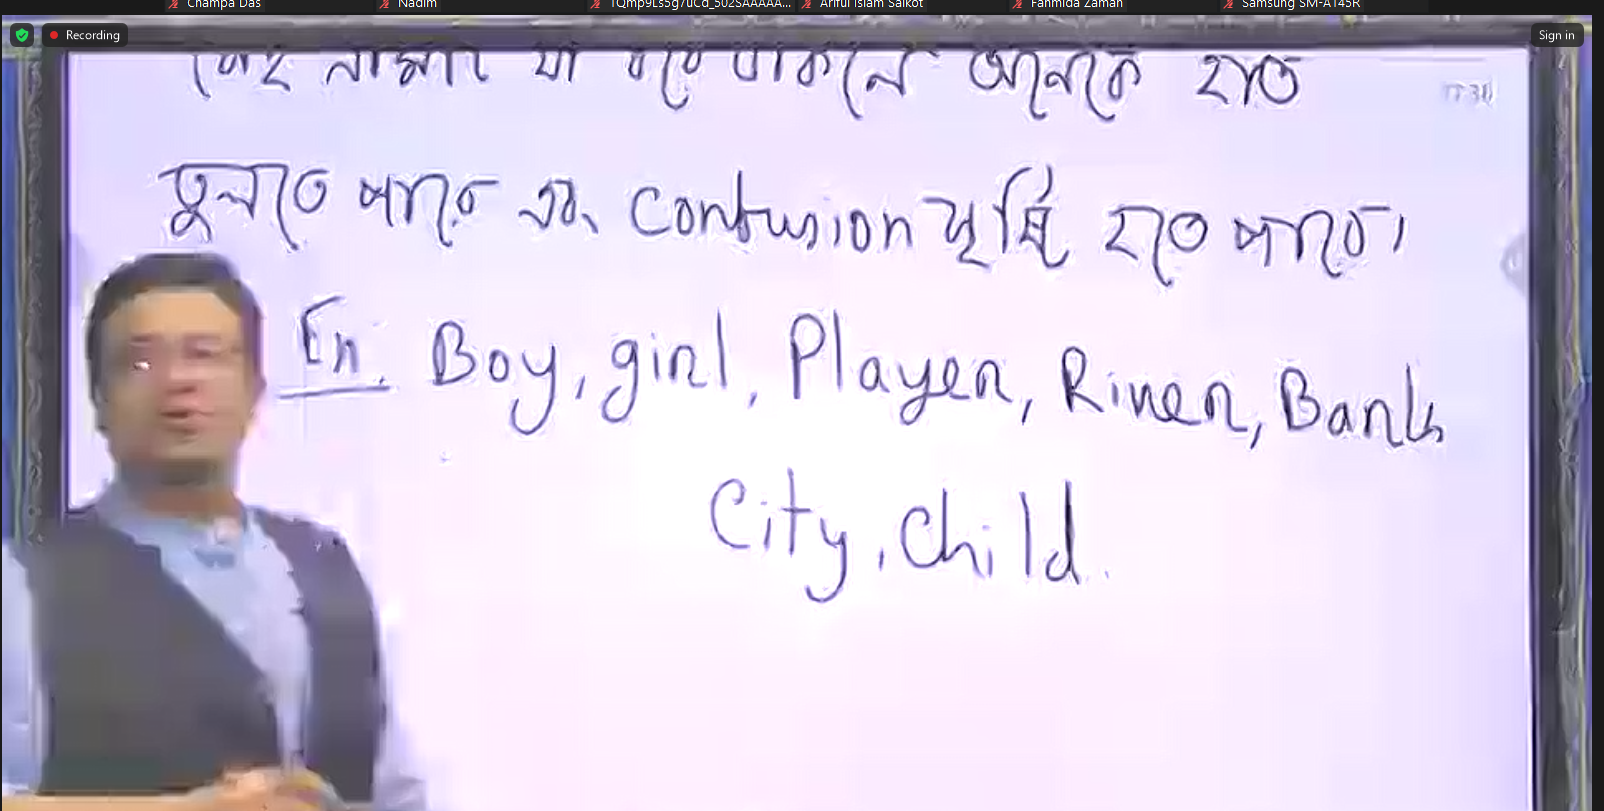 Champa Das Nadim TQmp9Ls5g7uCd_502SAAAAA... Ariful Islam Saikot Fahmida Zaman Samsung SM-A145R
Recording Sign in
সেই নামটি যা ধরে ডাকলে অনেকে হাত
তুলতে পারে এবং Confusion সৃষ্টি হতে পারে।
En. Boy, girl, Player, River, Bank
City, Child.